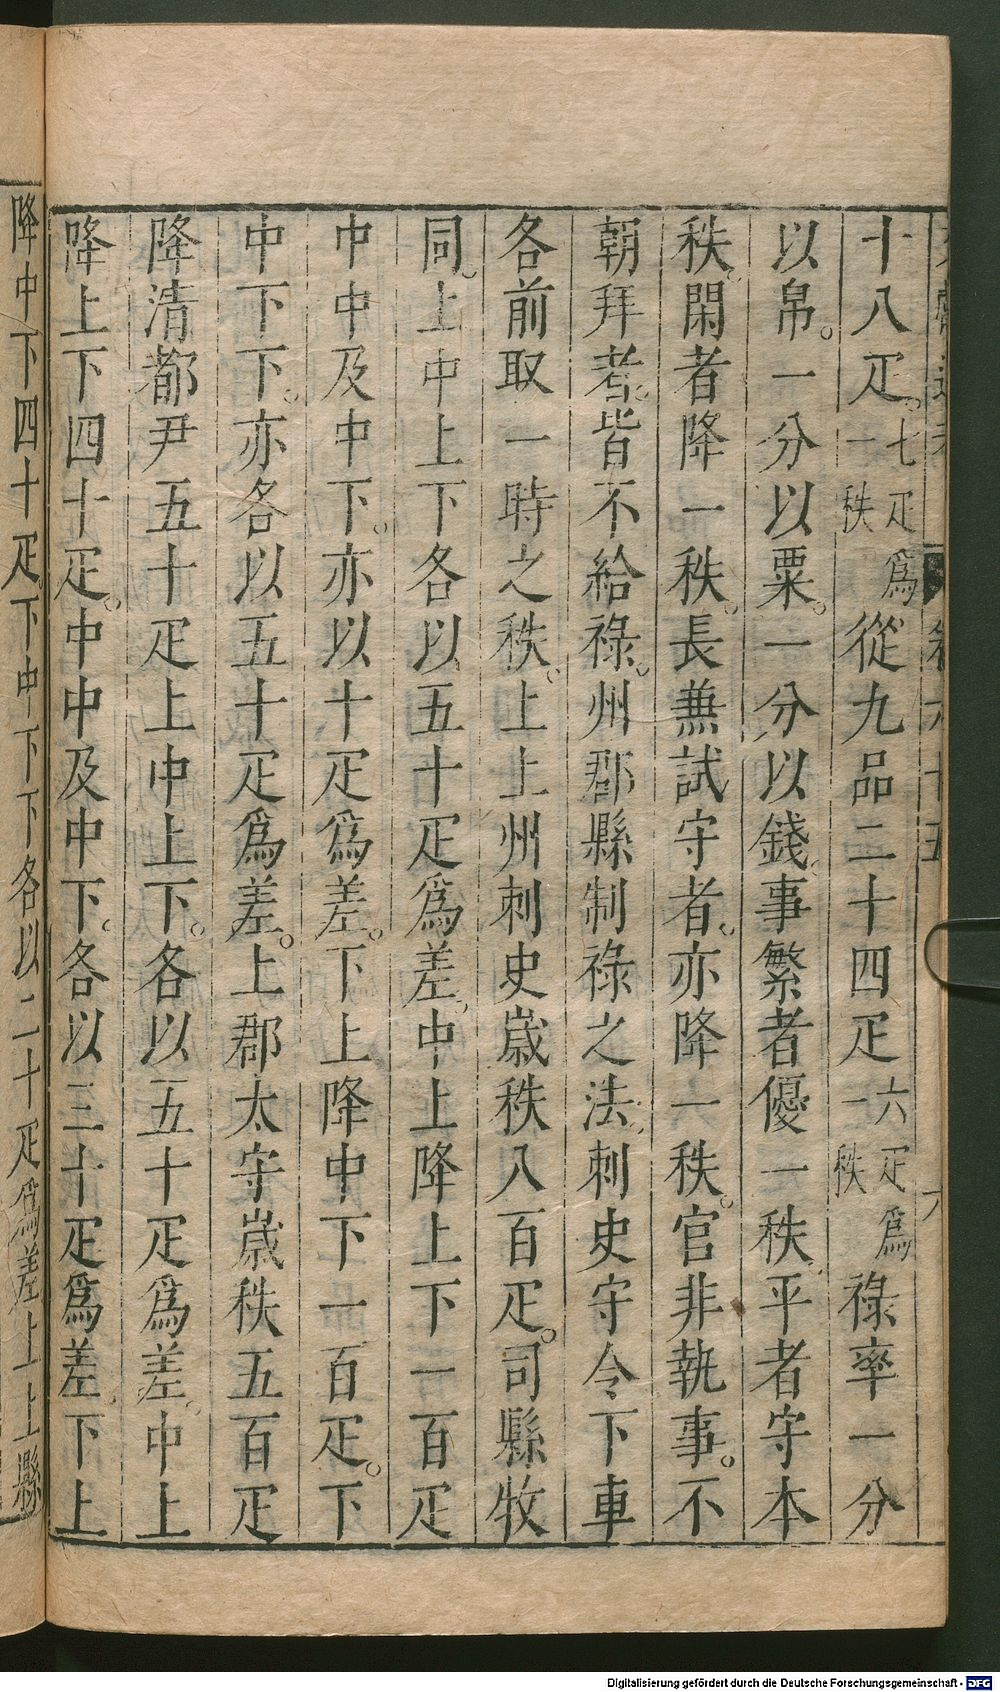 十八疋七疋爲一秩從九品二十四疋六疋爲一秩祿率一分
以帛一分以粟一分以錢事繁者優一秩平者守本
秩閑者降一秩長兼試守者亦降一秩官非執事不
朝拜者皆不給祿州郡縣制祿之法刺史守令下車
各前取一時之秩上上州刺史歲秩八百疋司縣牧
同上中上下各以五十疋爲差中上降上下一百疋
中中及中下亦以十疋爲差下上降中下一百疋下
中下下亦各以五十疋爲差上郡太守歲秩五百疋
降清都尹五十疋上中上下各以五十疋爲差中上
降上下四十疋中中及中下各以三十疋爲差下上
降中下四十疋下中下下各以二十疋爲差上上縣
卷六十五
六
Digitalisierung gefördert durch die Deutsche Forschungsgemeinschaft - DFG